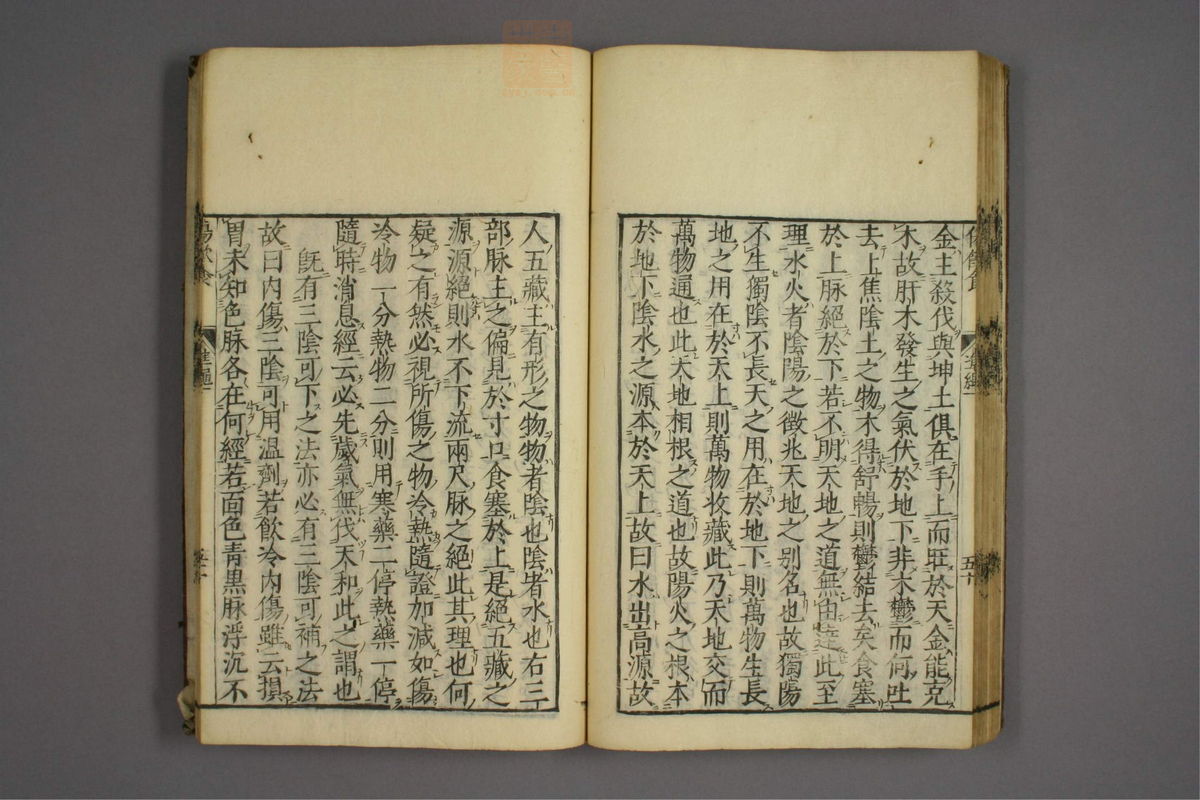 金主殺伐與坤土俱在手上而旺於天金能克
木故肝木發生之氣伏於地下非木鬱而何吐
去上焦陰土之物木得舒暢則鬱結去矣食塞
於上脉絕於下若不明天地之道無由達此至
理水火者陰陽之徵兆天地之别名也故獨陽
不生獨陰不長天之用在於地下則萬物生長
地之用在於天上則萬物收藏此乃天地交而
萬物通也此天地相根之道也故陽火之根本
於地下陰水之源本於天上故曰水出高源故
五十
人五藏主有形之物物者陰也陰者水也右三
部脉主之偏見於寸口食塞於上是絕五藏之
源源絕則水不下流兩尺脉之絕此其理也何
疑之有然必視所傷之物冷熱隨證加減如傷
冷物一分熱物二分則用寒藥二停熱藥一停
隨時消息經云必先歲氣無伐天和此之謂也
既有三陰可下之法亦必有三陰可補之法
故曰内傷三陰可用温劑若飲冷内傷雖云損
胃未知色脉各在何經若面色青黑脉浮沉不